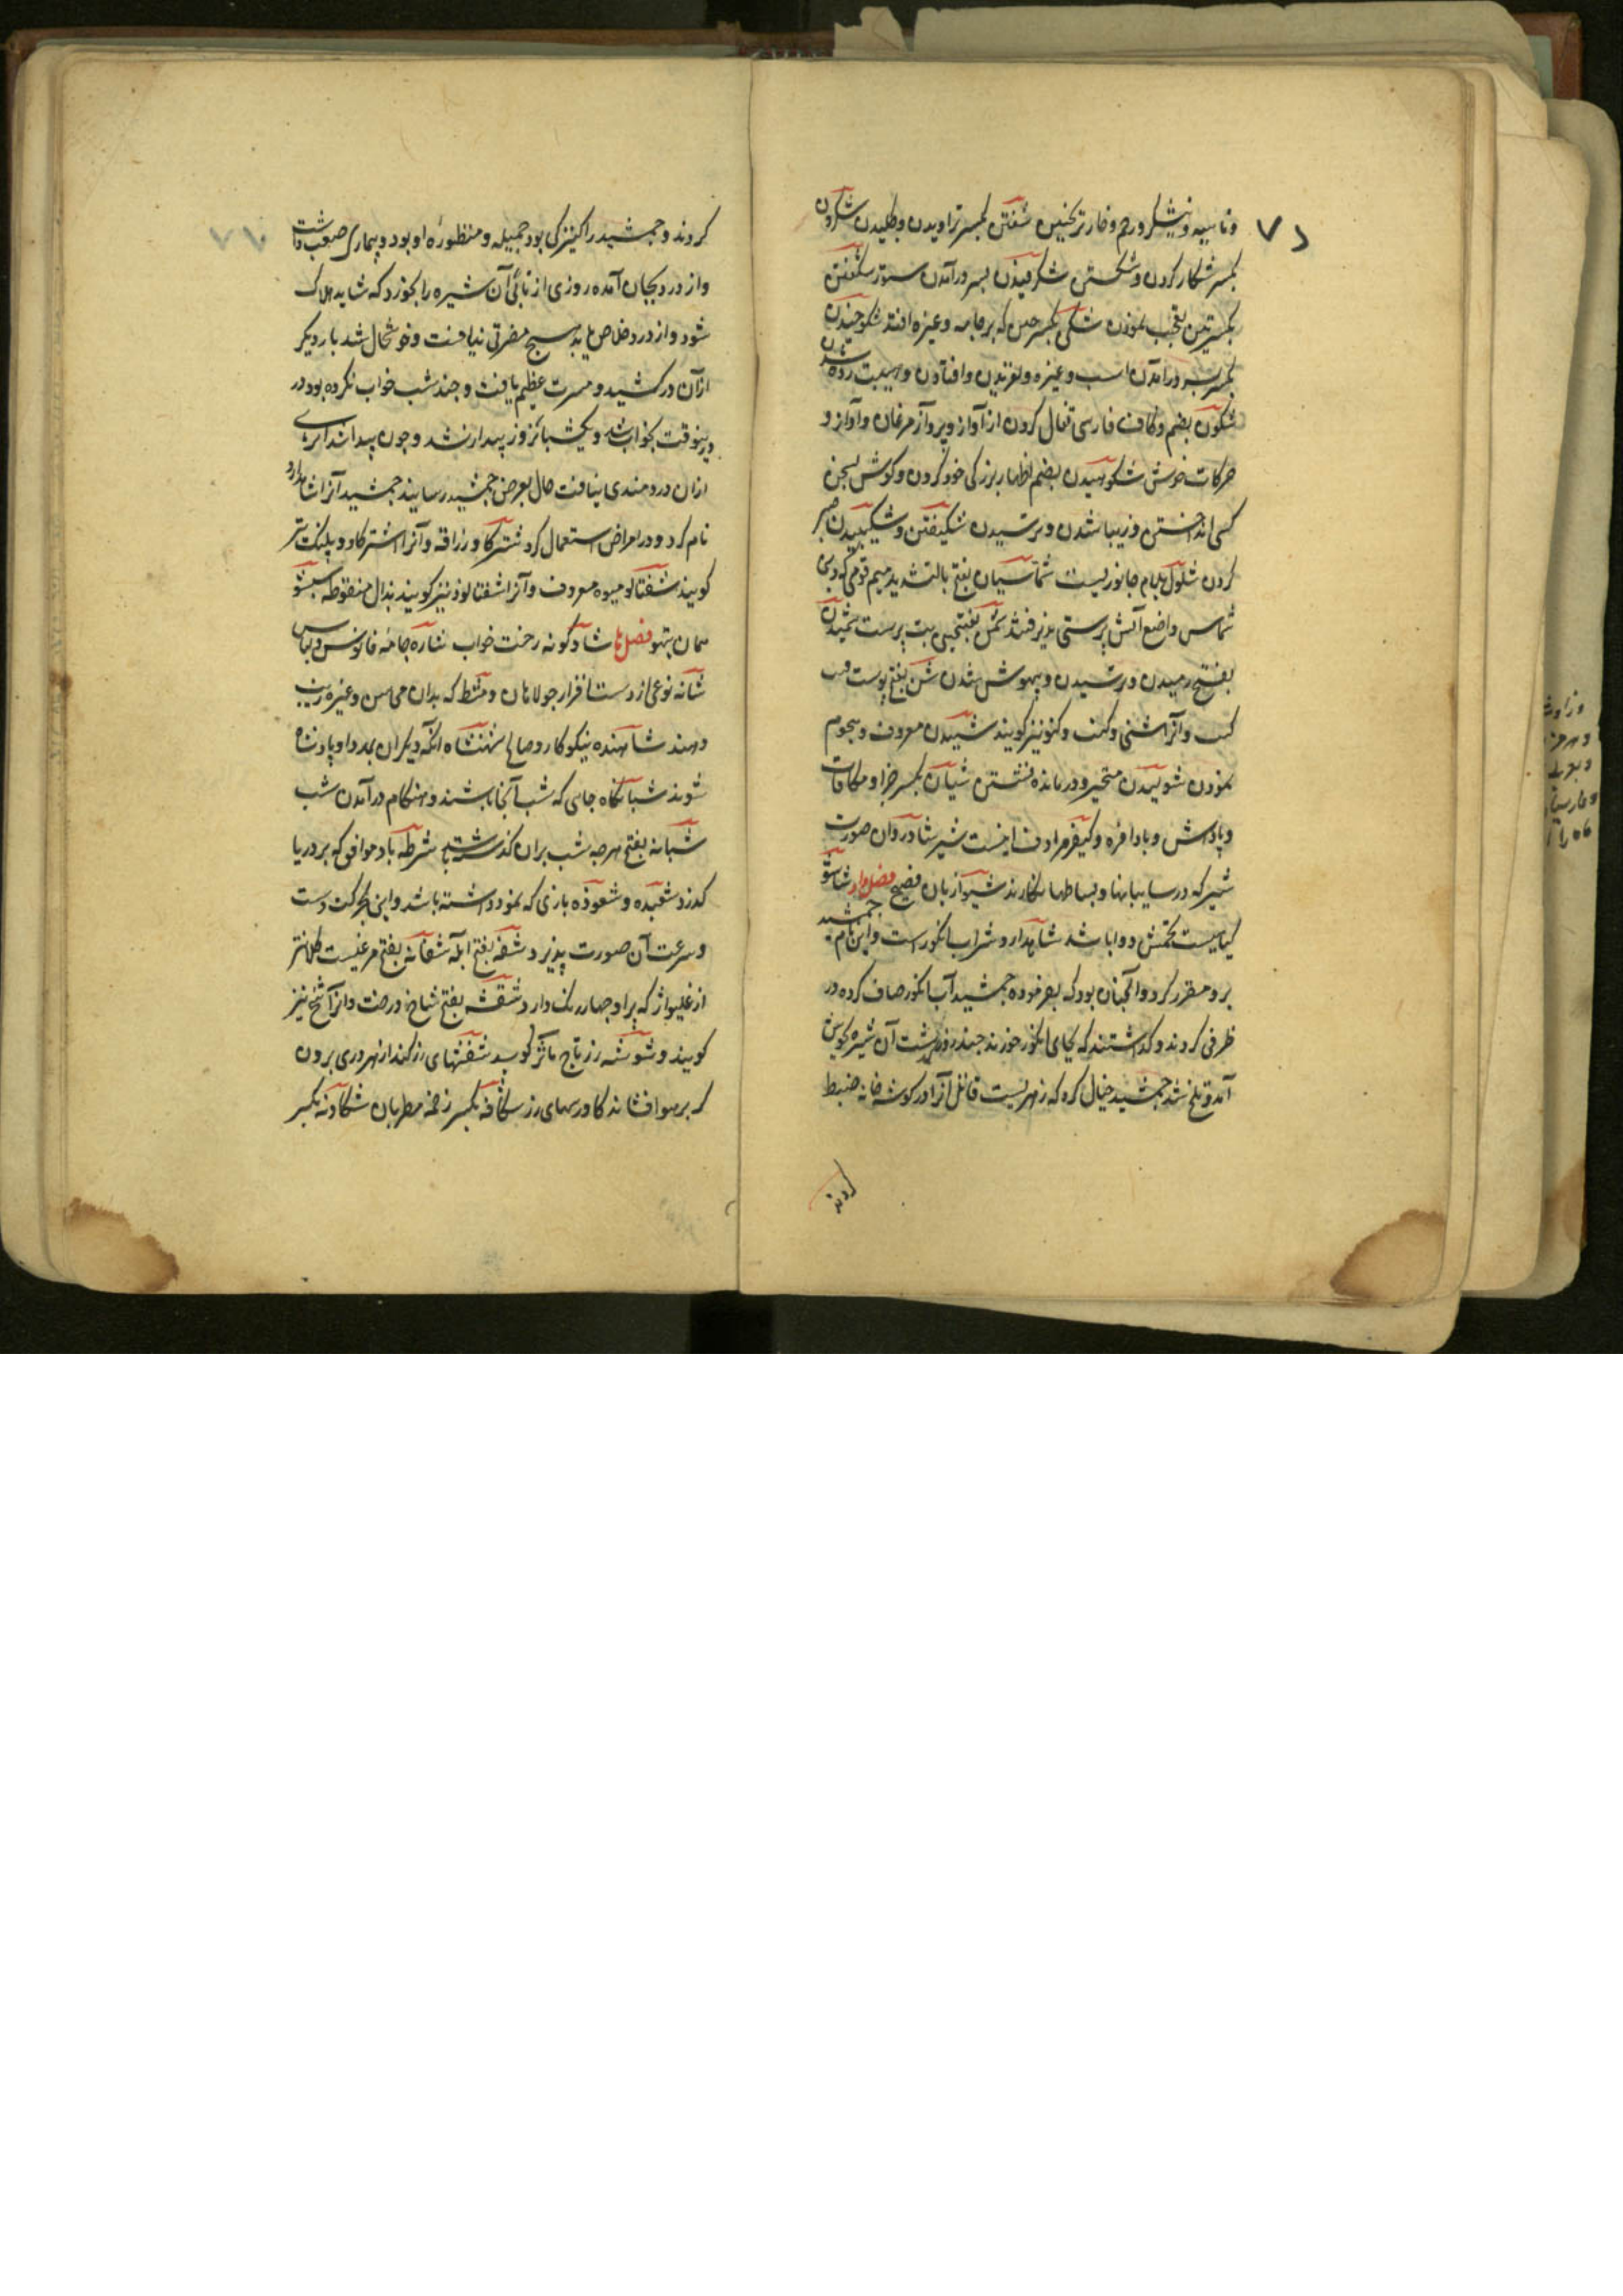 و ناسه و نیشکر و رحم و خار ترنجبین شفتن بکسر تراویدن و چکیدن شکردن
بکسر شکار کردن و شکستن شکرفیدن بسر درآمدن ستور شگفتن
بکسرتین تعجب نمودن شکن بکسر چین که بر جامه و غیره افتد شکوخیدن
بکسر بسر درآمدن اسب و غیره و لغزیدن و افتادن و هیبت زده شدن
شکون بضم و کاف فارسی تفال کردن از آواز و پرواز مرغان و آواز و
حرکات خوش شکوهیدن بضم اظهار بزرکی خود کردن و کوش بسخن
کسی انداختن و زیبا شدن و ترسیدن شکیفتن و شکیبیدن صبر
کردن شلول بلام جانوریست شماسیان بفتح بالتشدید میم قومی که دین
شماس واضع آتش پرستی پذیرفتند شمن بفتحتین بت پرست شمیدن
بفتح رمیدن و ترسیدن و بیهوش شدن شن بفتح پوست
کنب و آنرا شنی و کنف و کنو نیز کویند شنیدن معروف و هجوم
نمودن شولیدن متحیر و درمانده نشستن شیان بکسر جزا و مکافات
و پاداش و بادافره و کیفر مرادف اینست شیر شادروان صورت
شیر که در سایبانها و بساطها نکارند شیوا زبان فصیح فصل واو شاشو
کیاهیست تخمش دوا باشد شاهدارو شراب انکور است و این نام جمشید
برو مقرر کرد و آنچنان بود که بفرموده جمشید آب انکور صاف کرده در
ظرفی کردند و کذاشتند که بجای انکور خورند چند روز کذشت آن شیره بجوش
آمد و تلخ شد جمشید خیال کرد که زهریست قاتل آنرا در کوشه خانه ضبط
کردند
کردند و جمشید را کنیزکی بود جمیله و منظوره او بود و بیماری صعب داشت
و از درد بجان آمده روزی از آن شیره را بخورد که شاید هلاک
شود و از درد خلاص یابد هیچ مضرتی نیافت و خوشحال شد بار دیکر
از آن درکشید و مسرت عظیم یافت و چند شب خواب نکرده بود در
اینوقت بخواب شد و یکشبانروز بیدار نشد و چون بیدار شد اثری
از آن دردمندی نیافت حال بعرض جمشید رسانیدند جمشید آنرا شاهدارو
نام کرد و در امراض استعمال کرد شترکا و زرافه و آنرا اشترکاو و پلنک نیز
کویند شفتالو میوه معروف و آنرا شفتالوذ نیز کویند بذال منقوطه شیشو
همان تیهو فصل ها شادکونه رخت خواب شاره جامه فانوس و لباس
شانه نوعی از دست افزار جولاهان و مشط که بدان محاسن و غیره زینت
دهند شاهنده نیکوکار و صالح شاهنشاه آنکه دیکران بمدد او پادشاه
شوند شبانکاه جای که شب آنجا باشند و هنکام درآمدن شب
شبانه بفتح هرچه شب بران کذشته شرطه باد موافق که بر دریا
کذرد شعبده و شعوذه بازی که نمود داشته باشد و این بحرکت دست
و سرعت آن صورت پذیرد شغه بفتح آبله شفانه بفتح مرغیست کلانتر
از غلیواژ که پر او چهار رنک دارد شغشه بفتح شاخ درخت و آنرا شخ نیز
کویند و شوشه زر شفشهای زر کنند از
که بر هوا افشاند کاورسهای زر شکافه بکسر زخمه مطربان شکاونه بکسر